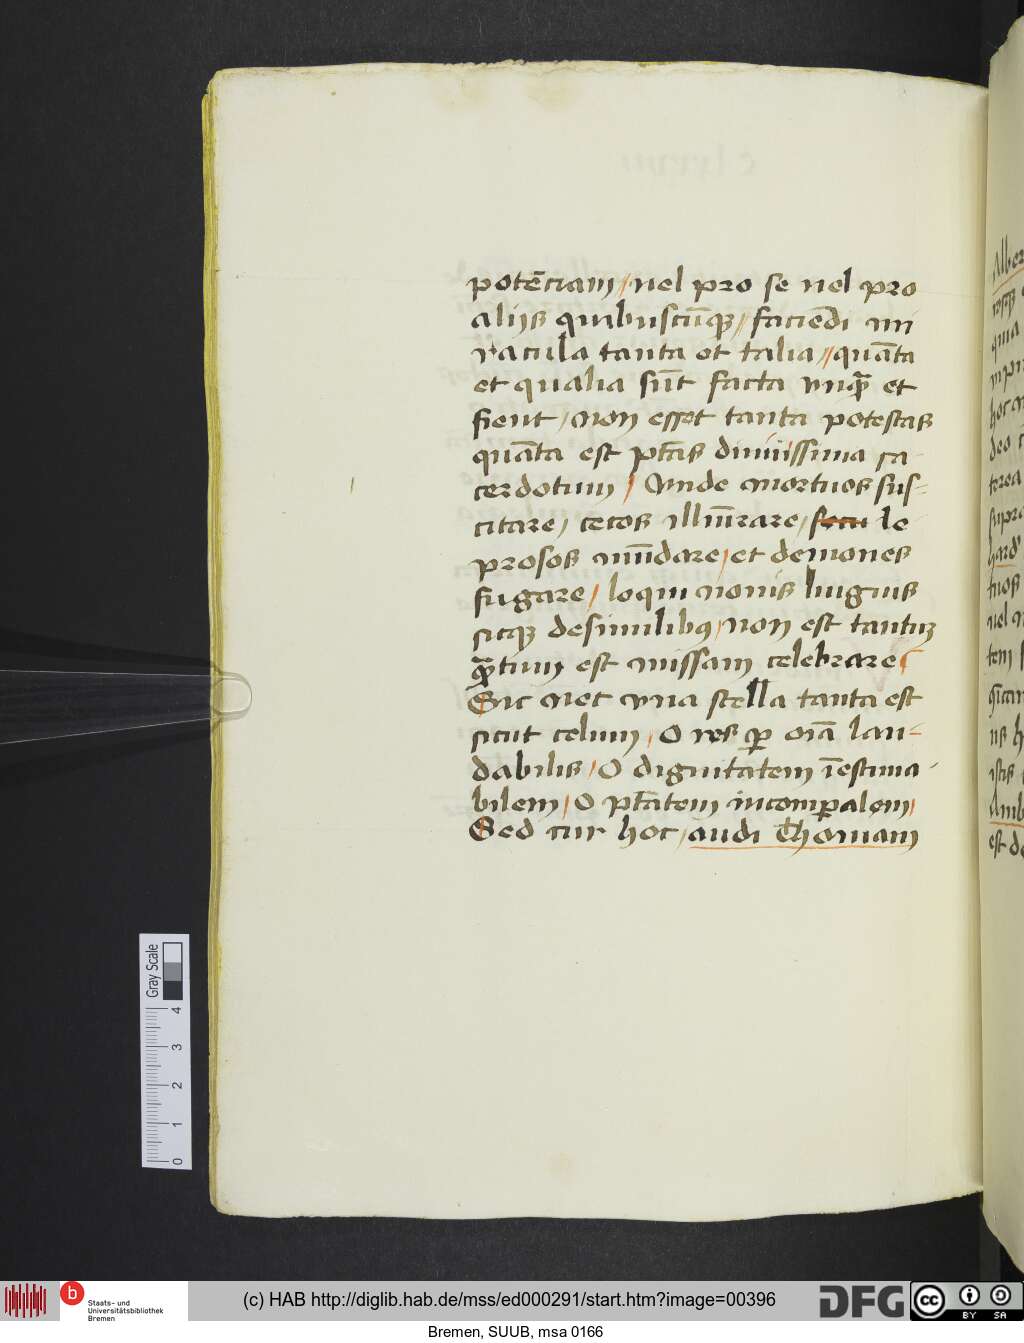 potēciam / uel pro se uel pro
alijs quibuscūqꝫ // faciēdi mi
racula tanta et talia // quāta
et qualia sūt facta vnqꝫ̄ et
fient / non esset tanta potestas
quāta est ptās diuinissima sa-
cerdotum / Vnde mortuos sus-
citare / cecos illuīare / le
prosos mūdare / et demones
fugare / loqui nouis linguis
sicqꝫ desimilibꝰ / non est tantuꝫ
qꝫ̄tum est missam celebrare
Sic nec vna stella tanta est
sicut celum / O res ꝑ oīa lau-
dabilis / O dignitatem īestima-
bilem / O ptātem incomꝑalem /
Sed cur hoc / audi Thomam
Gray Scale
4
3
2
1
0
Staats- und
Universitätsbibliothek
Bremen
(c) HAB http://diglib.hab.de/mss/ed000291/start.htm?image=00396
DFG
cc
BY SA
Bremen, SUUB, msa 0166